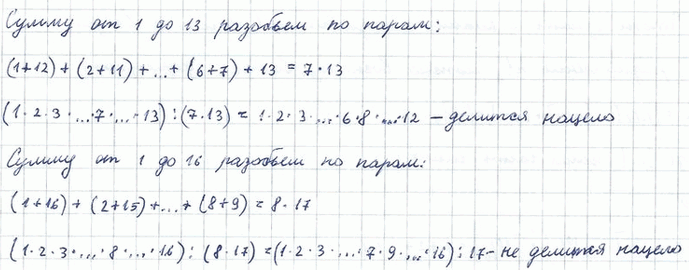 Сумму от 1 до 13 разобьем по парам:
(1+12) + (2+11) + ... + (6+7) + 13 = 7·13
(1·2·3·...·7·...·13) : (7·13) = 1·2·3·...·6·8·...·12 – делится нацело
Сумму от 1 до 16 разобьем по парам:
(1+16) + (2+15) + ... + (8+9) = 8·17
(1·2·3·...·8·...·16) : (8·17) = (1·2·3·...·7·9·...·16) : 17 – не делится нацело